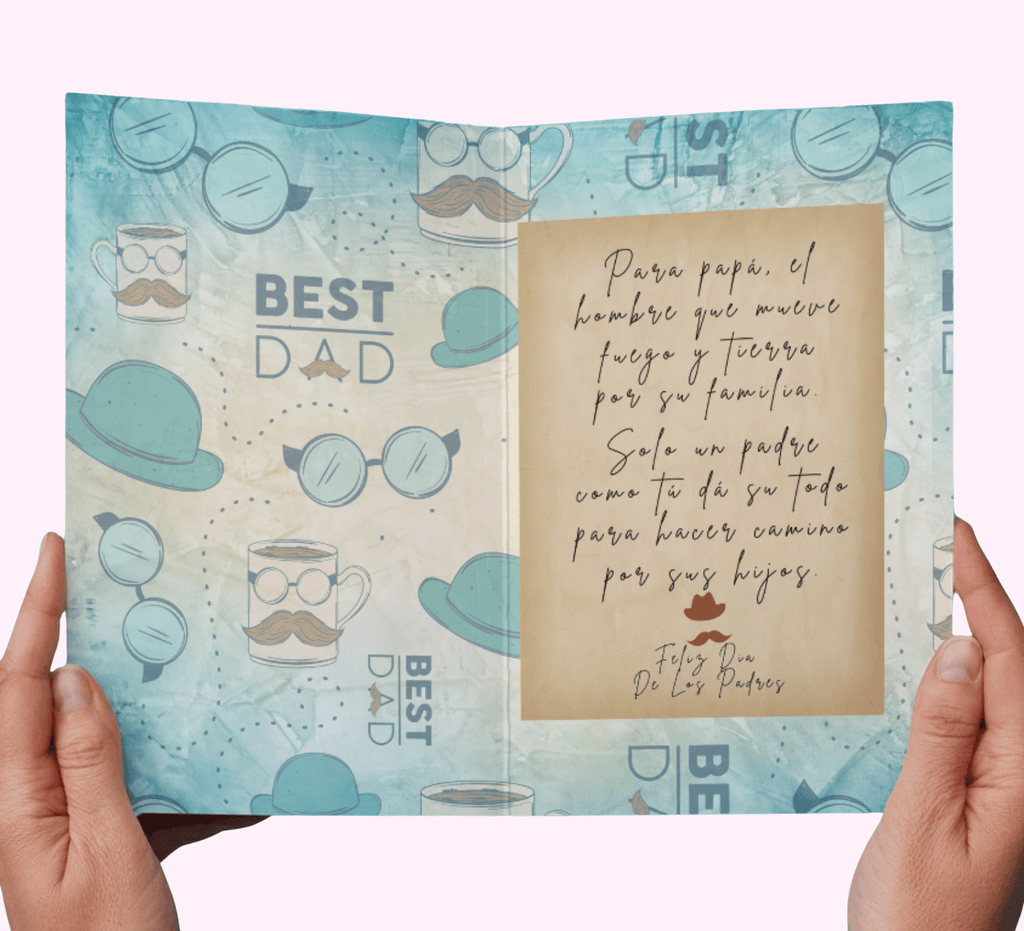 BEST
DAD
BEST
DAD
BEST
DAD
Para papá, el
hombre que mueve
fuego y tierra
por su familia.
Solo un padre
como tú dá su todo
para hacer camino
por sus hijos.
Feliz Dia
De Los Padres